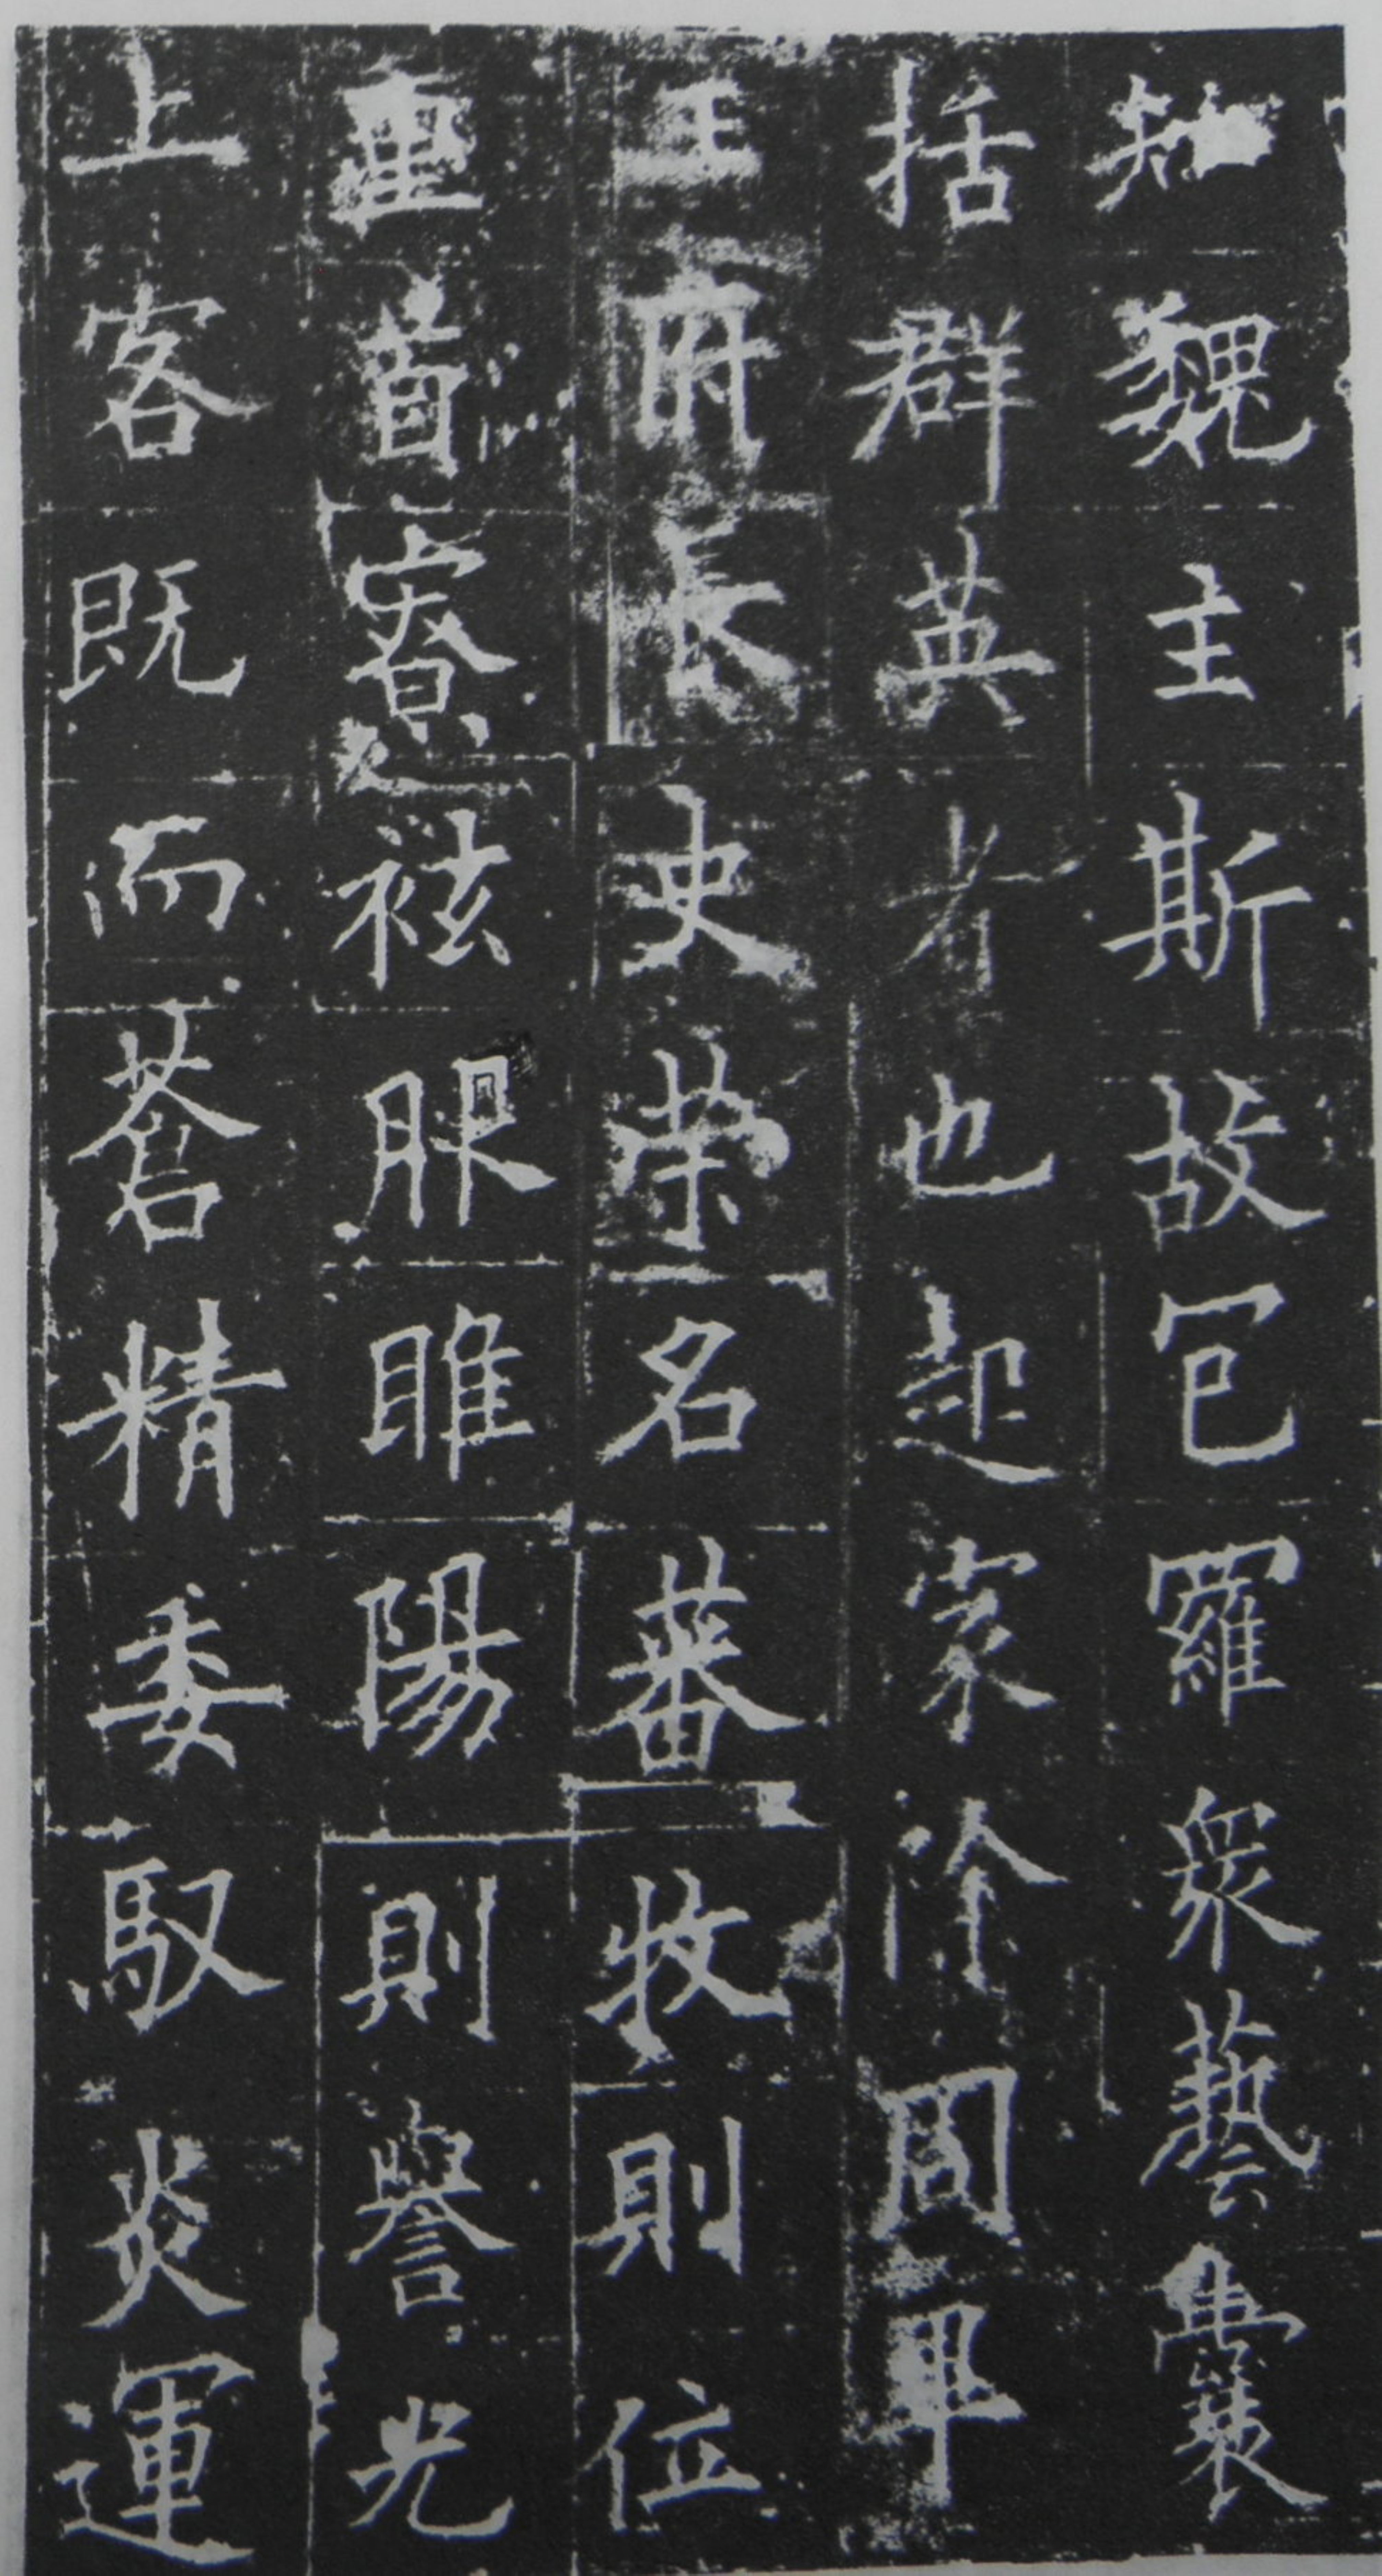 知魏主斯故包羅衆藝囊
括群英者也起家除周畢
王府長史榮名蕃牧則位
重首寮袨服睢陽則譽光
上客既而蒼精委馭炎運